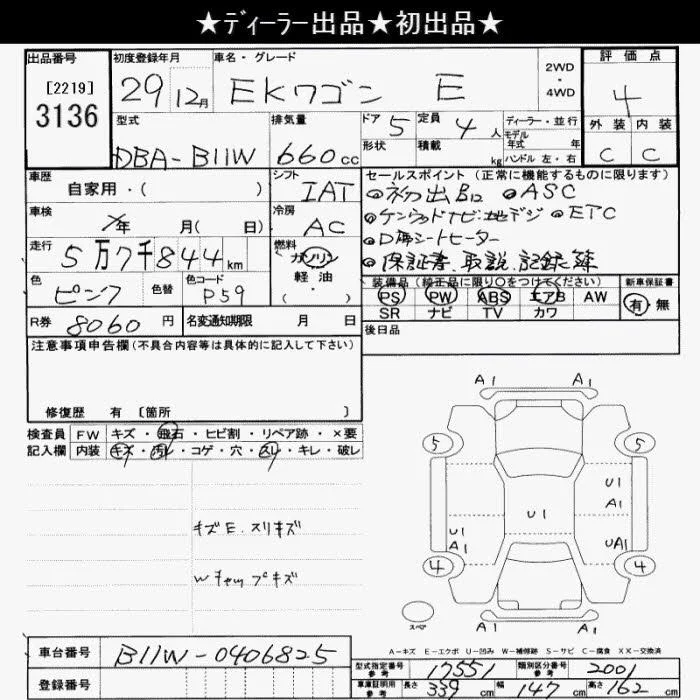 ★ディーラー出品★初出品★
出品番号 初度登録年月 車名・グレード 評価点
[2219] 29 12月 EKワゴン E 2WD・4WD 4
3136 型式 排気量 ドア 5 定員 4人 ディーラー・並行 外装 内装
モデル年式 年
DBA-B11W 660cc 形状 積載 kg ハンドル 左・右 C C
車歴 シフト セールスポイント (正常に機能するものに限ります)
自家用・( ) IAT ◎初出品 ◎ASC
車検 年 月( 日) 冷房 AC ◎ケンウッドナビ・地デジ ◎ETC
走行 燃料 ◎D席シートヒーター
5万7千844km ガソリン ◎保証書、取説、記録簿
色 色替 色コード 軽・油 装備品(純正品に限り○をつけてください) 新車保証書
ピンク P59 ( ) PS PW ABS エアB AW 有 無
R券 8060円 名変通知期限 月 日 SR ナビ TV カワ
注意事項申告欄(不具合内容等は具体的に記入して下さい) 後日品
修復歴 有 [箇所 ]
検査員 FW キズ・飛石・ヒビ割・リペア跡・×要
記入欄 内装 キズ・汚レ・コゲ・穴・スレ・キレ・破レ
A1 A1
5 5
U1
A1
U1
U1
A1
UA1
4 4
キズE.スリキズ
Wチャップキズ
スペア
A1 A1
A-キズ E-エクボ U-凹み W-補修跡 S-サビ C-腐食 XX-交換済
車台番号 B11W-0406825
型式指定番号 参考 17551 類別区分番号 参考 2001
登録番号 車庫証明用 参考 長さ 339 cm 幅 147 cm 高さ 162 cm